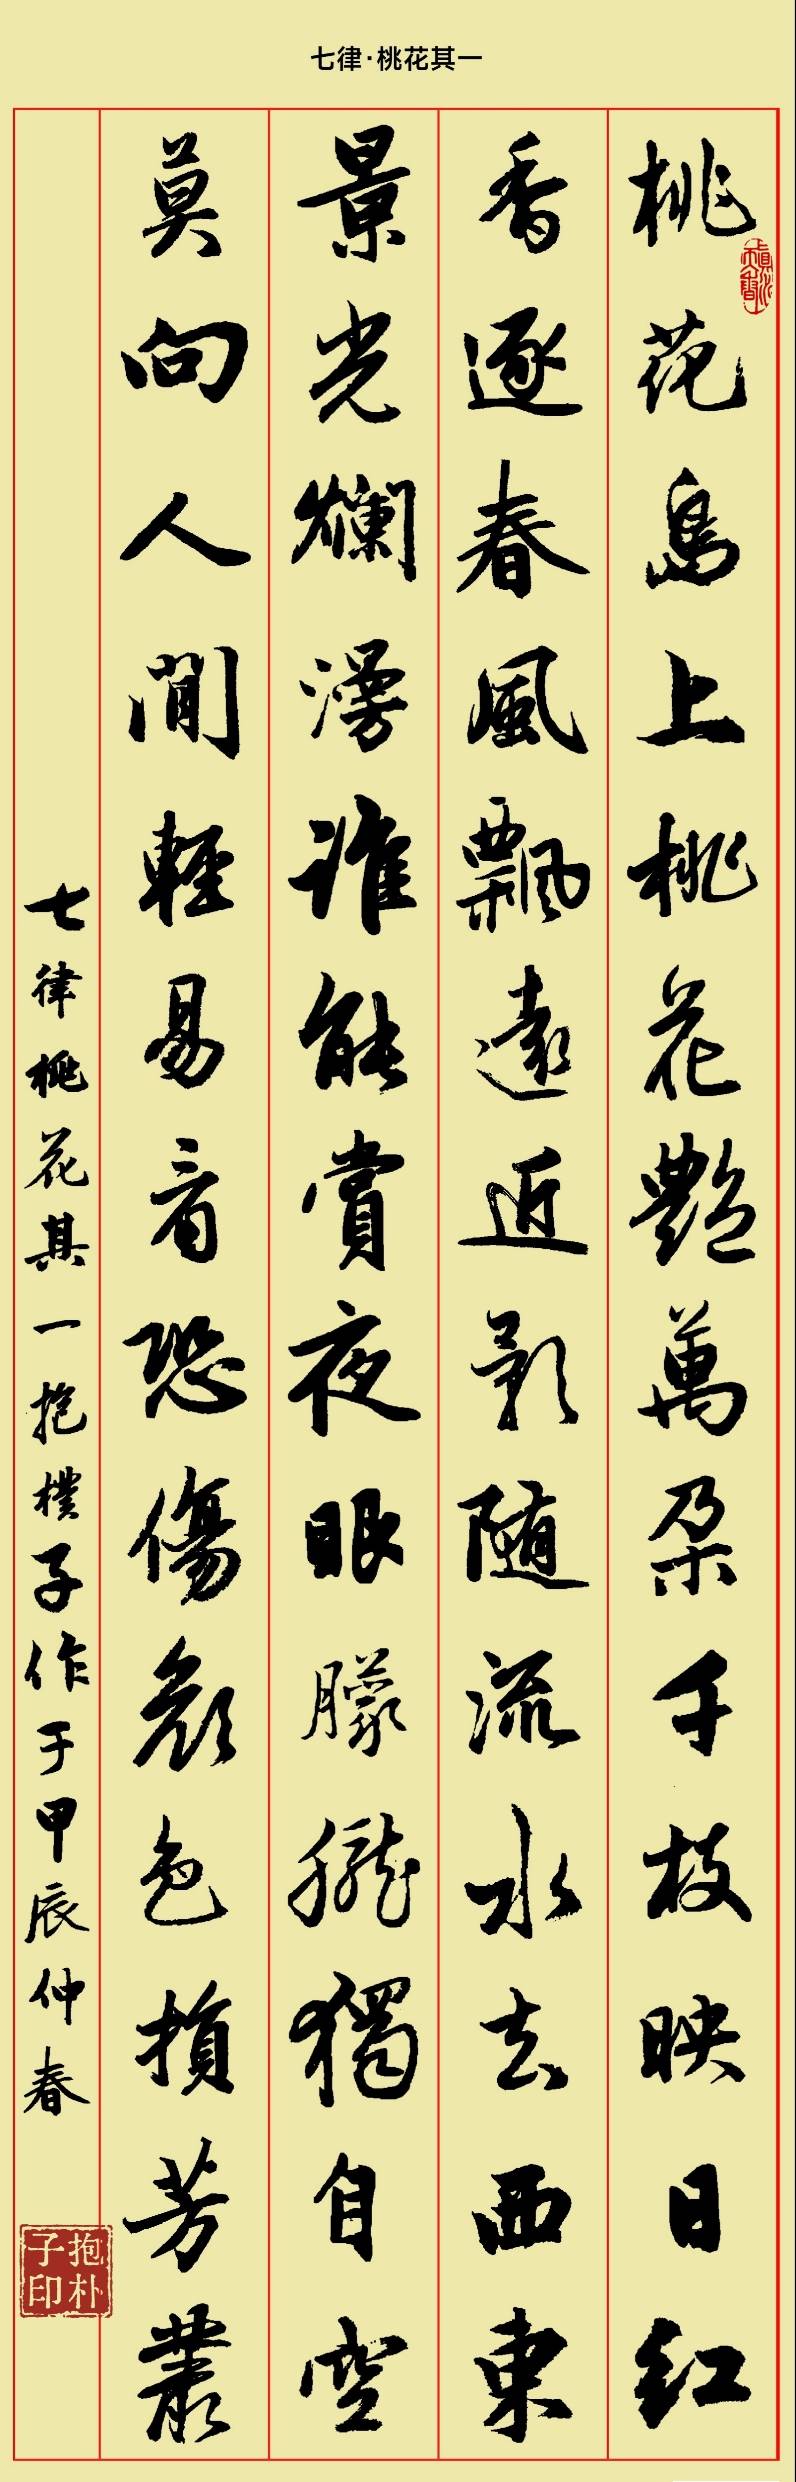 七律·桃花其一
桃花島上桃花艷萬朵千枝映日紅
香逐春風飄遠近影随流水去西東
景光爛漫誰能賞夜眼朦朧獨自空
莫向人間輕易看恐傷顏色損芳叢
七律桃花其一抱樸子作于甲辰仲春
抱朴子印